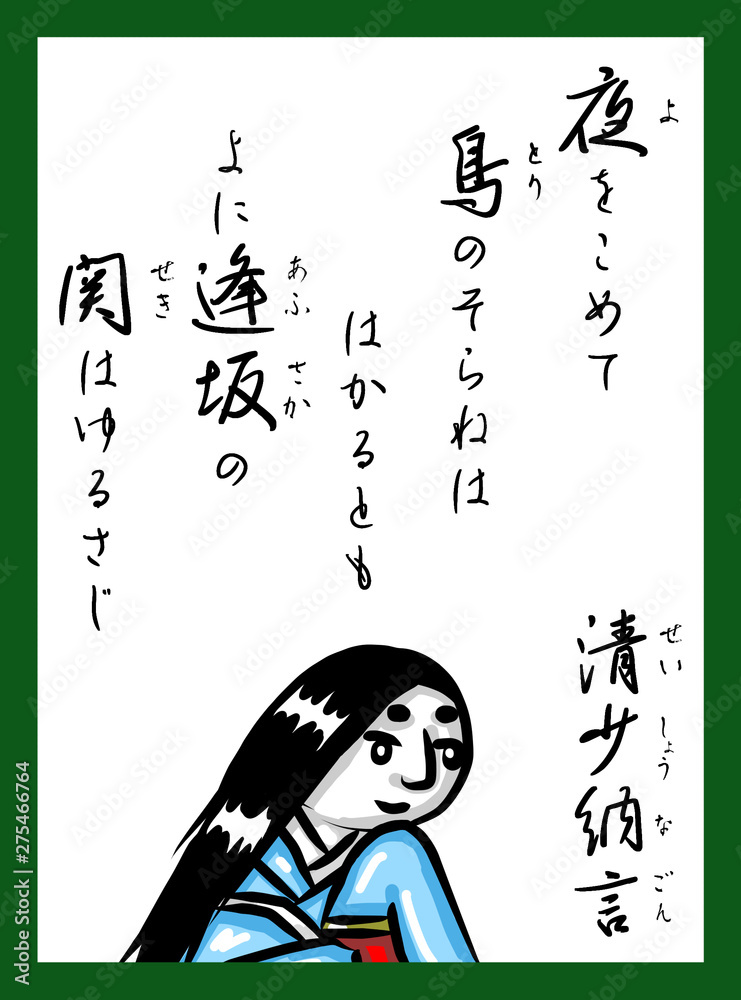 夜をこめて
よ
鳥のそらねは
とり
はかるとも
よに逢坂の
あふさか
関はゆるさじ
せき
清少納言
せいしょうなごん
Adobe Stock | #275466764